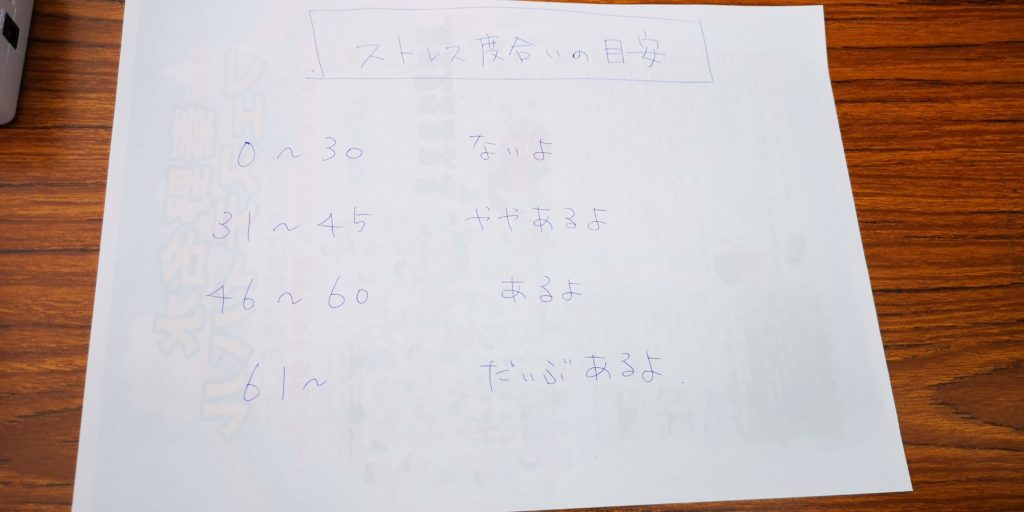 ストレス度合いの目安
0～30 ないよ
31～45 ややあるよ
46～60 あるよ
61～ だいぶあるよ